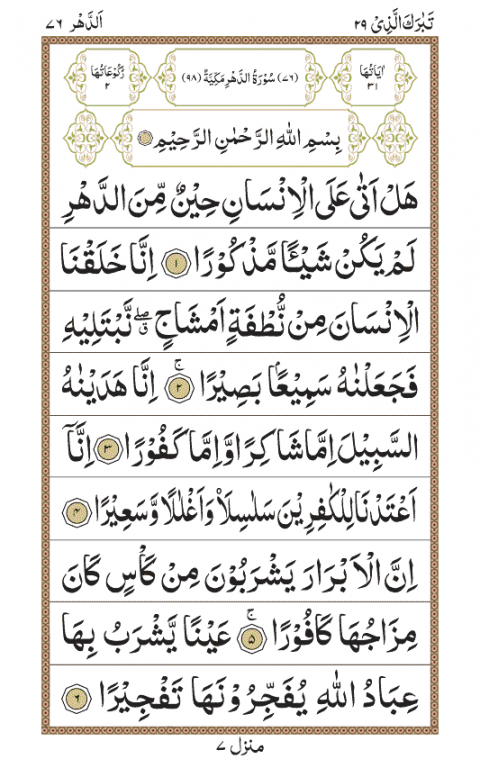 تَبٰرَكَ الَّذِیْ ۲۹
اَلدَّهْر ۷۶
اٰیَاتُهَا ۳۱
(۷۶) سُوْرَةُ الدَّهْرِ مَكِّیَّةٌ (۹۸)
رُكُوْعَاتُهَا ۲
بِسْمِ اللهِ الرَّحْمٰنِ الرَّحِیْمِ
هَلْ اَتٰی عَلَی الْاِنْسَانِ حِیْنٌ مِّنَ الدَّهْرِ
لَمْ یَكُنْ شَیْـًٔا مَّذْكُوْرًا ۱ اِنَّا خَلَقْنَا
الْاِنْسَانَ مِنْ نُّطْفَةٍ اَمْشَاجٍ ۖۗ نَّبْتَلِیْهِ
فَجَعَلْنٰهُ سَمِیْعًۢا بَصِیْرًا ۚ ۲ اِنَّا هَدَیْنٰهُ
السَّبِیْلَ اِمَّا شَاكِرًا وَّاِمَّا كَفُوْرًا ۳ اِنَّاۤ
اَعْتَدْنَا لِلْكٰفِرِیْنَ سَلٰسِلَا۟ وَاَغْلٰلًا وَّسَعِیْرًا ۴
اِنَّ الْاَبْرَارَ یَشْرَبُوْنَ مِنْ كَاْسٍ كَانَ
مِزَاجُهَا كَافُوْرًا ۚ ۵ عَیْنًا یَّشْرَبُ بِهَا
عِبَادُ اللهِ یُفَجِّرُوْنَهَا تَفْجِیْرًا ۶
منزل ۷